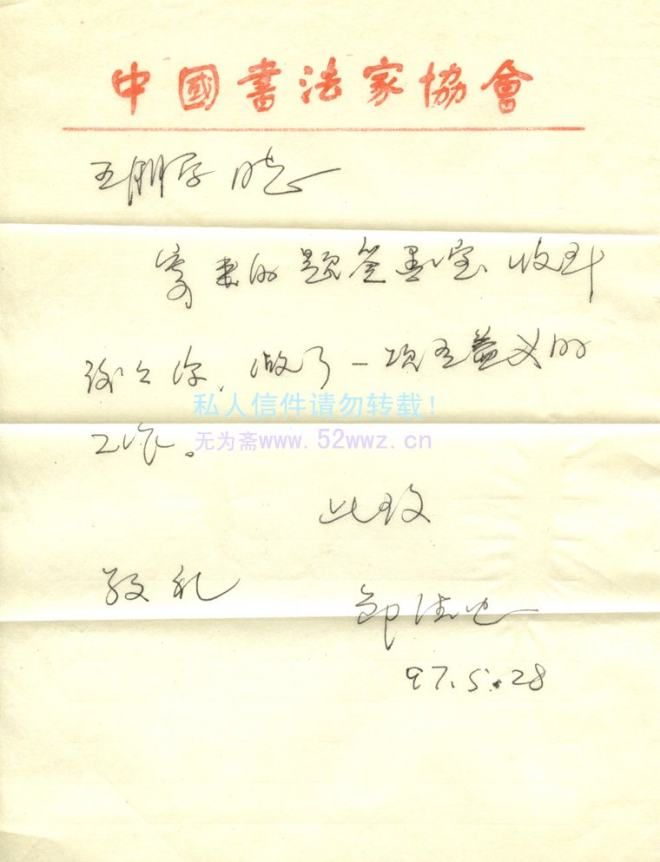 中國書法家協會
王朋学 同志
寄来的题签墨宝收到
谢谢你，做了一项有益义的
私人信件请勿转载！
工作。
无为斋www.52wwz.cn
此致
敬礼
97.5.28